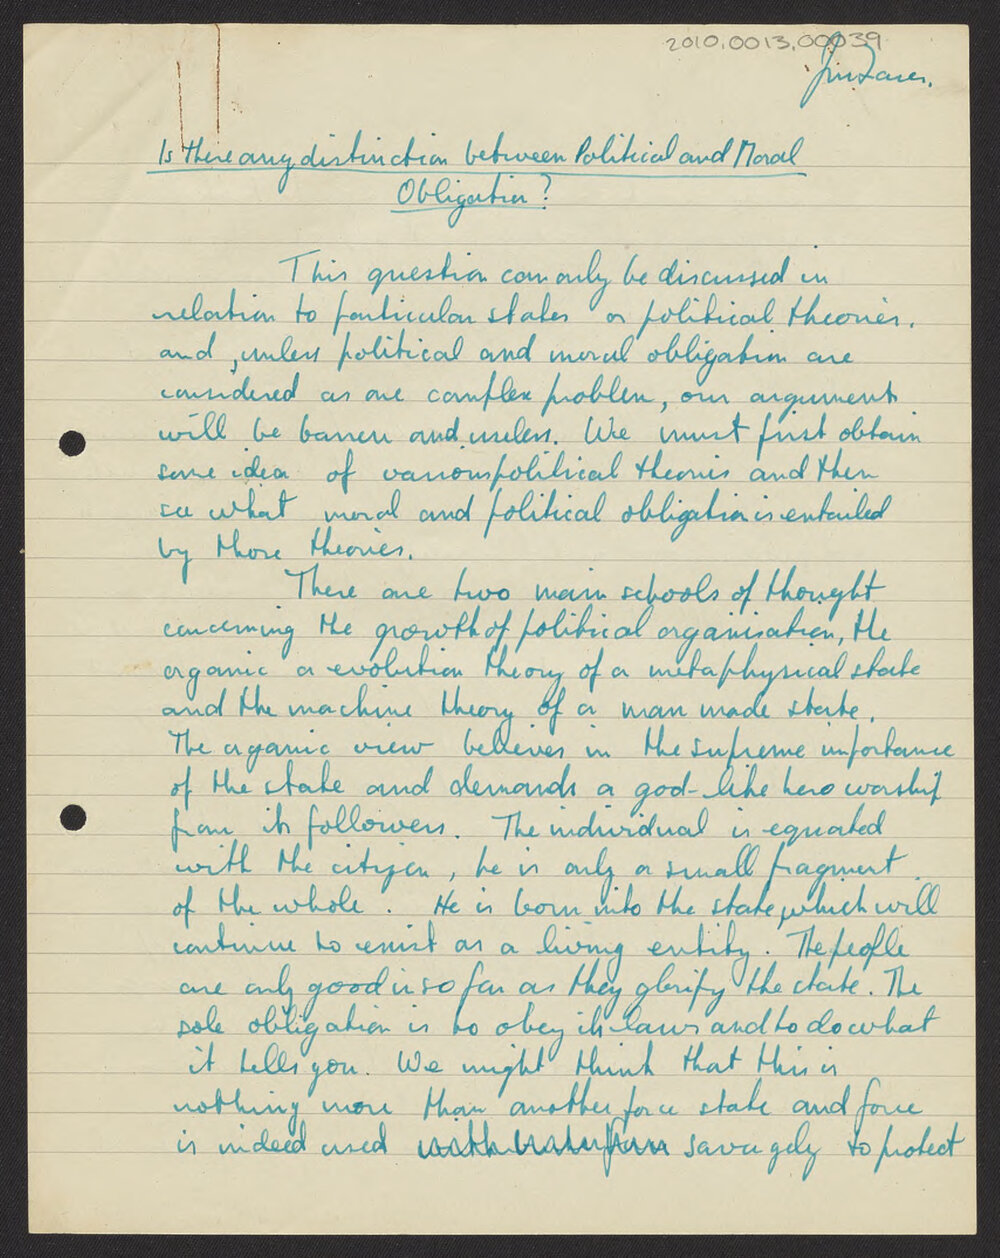 2010.0013.00039
Is there any distinction between Political and Moral
Obligation?
This question can only be discussed in
relation to particular states or political theories.
and, unless political and moral obligation are
considered as one complex problem, our arguments
will be barren and useless. We must first obtain
some idea of various political theories and then
see what moral and political obligation is entailed
by those theories.
There are two main schools of thought
concerning the growth of political organisation, the
organic or evolution theory of a metaphysical state
and the machine theory of a man made state.
The organic view believes in the supreme importance
of the state and demands a god-like hero worship
from its followers. The individual is equated
with the citizen, he is only a small fragment
of the whole. He is born into the state, which will
continue to exist as a living entity. The people
are only good in so far as they glorify the state. The
sole obligation is to obey its laws and to do what
it tells you. We might think that this is
nothing more than another force state and force
is indeed used savagely to protect